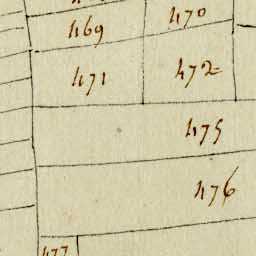 469 470
471 472
475
476
477